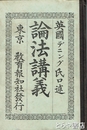 英國 デニング 氏口述
論法講義
東京 教育報知社發行